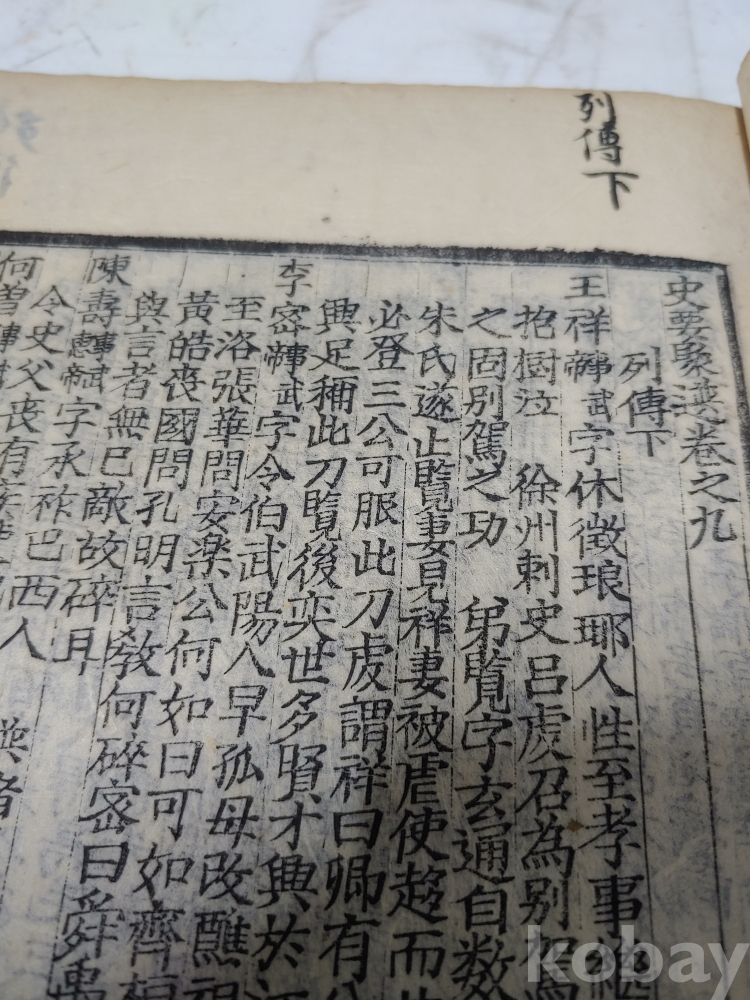 列傳下
史要聚選卷之九
列傳下
王祥 武 字休徵琅瑘人性至孝事
抱樹泣 徐州刺史呂虔召為別駕
之固別駕之功 弟覽字玄通自数
朱氏遂止覽妻見祥妻被虐使趍而
必登三公可服此刀虔謂祥曰卿有公
興足稱此刀覽後奕世多賢才興於江
李密 武 字令伯武陽人早孤母改醮祖
至洛張華問安楽公何如曰可如齊桓
黃皓喪國問孔明言敎何碎密曰舜禹
與言者無已敵故碎耳
陳壽 字承祚巴西人
令史父喪有疾
何曾
kobay